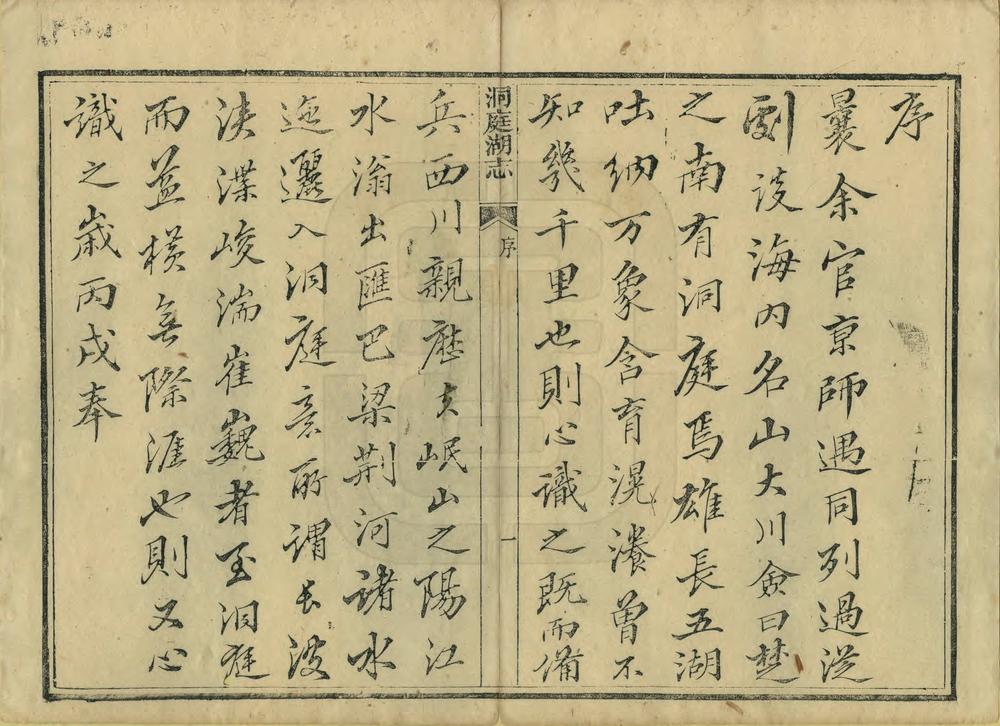 序
曩余官京師遇同列過從
劇談海内名山大川僉曰楚
之南有洞庭焉雄長五湖
吐納万象含育滉瀁曾不
知幾千里也則心識之既而備
洞庭湖志
序
一
兵西川親歷夫岷山之陽江
水滃出匯巴梁荆河諸水
迤邐入洞庭意所謂長波
浹渫峻湍崔巍者至洞庭
而益橫無際涯也則又心
識之歲丙戌奉